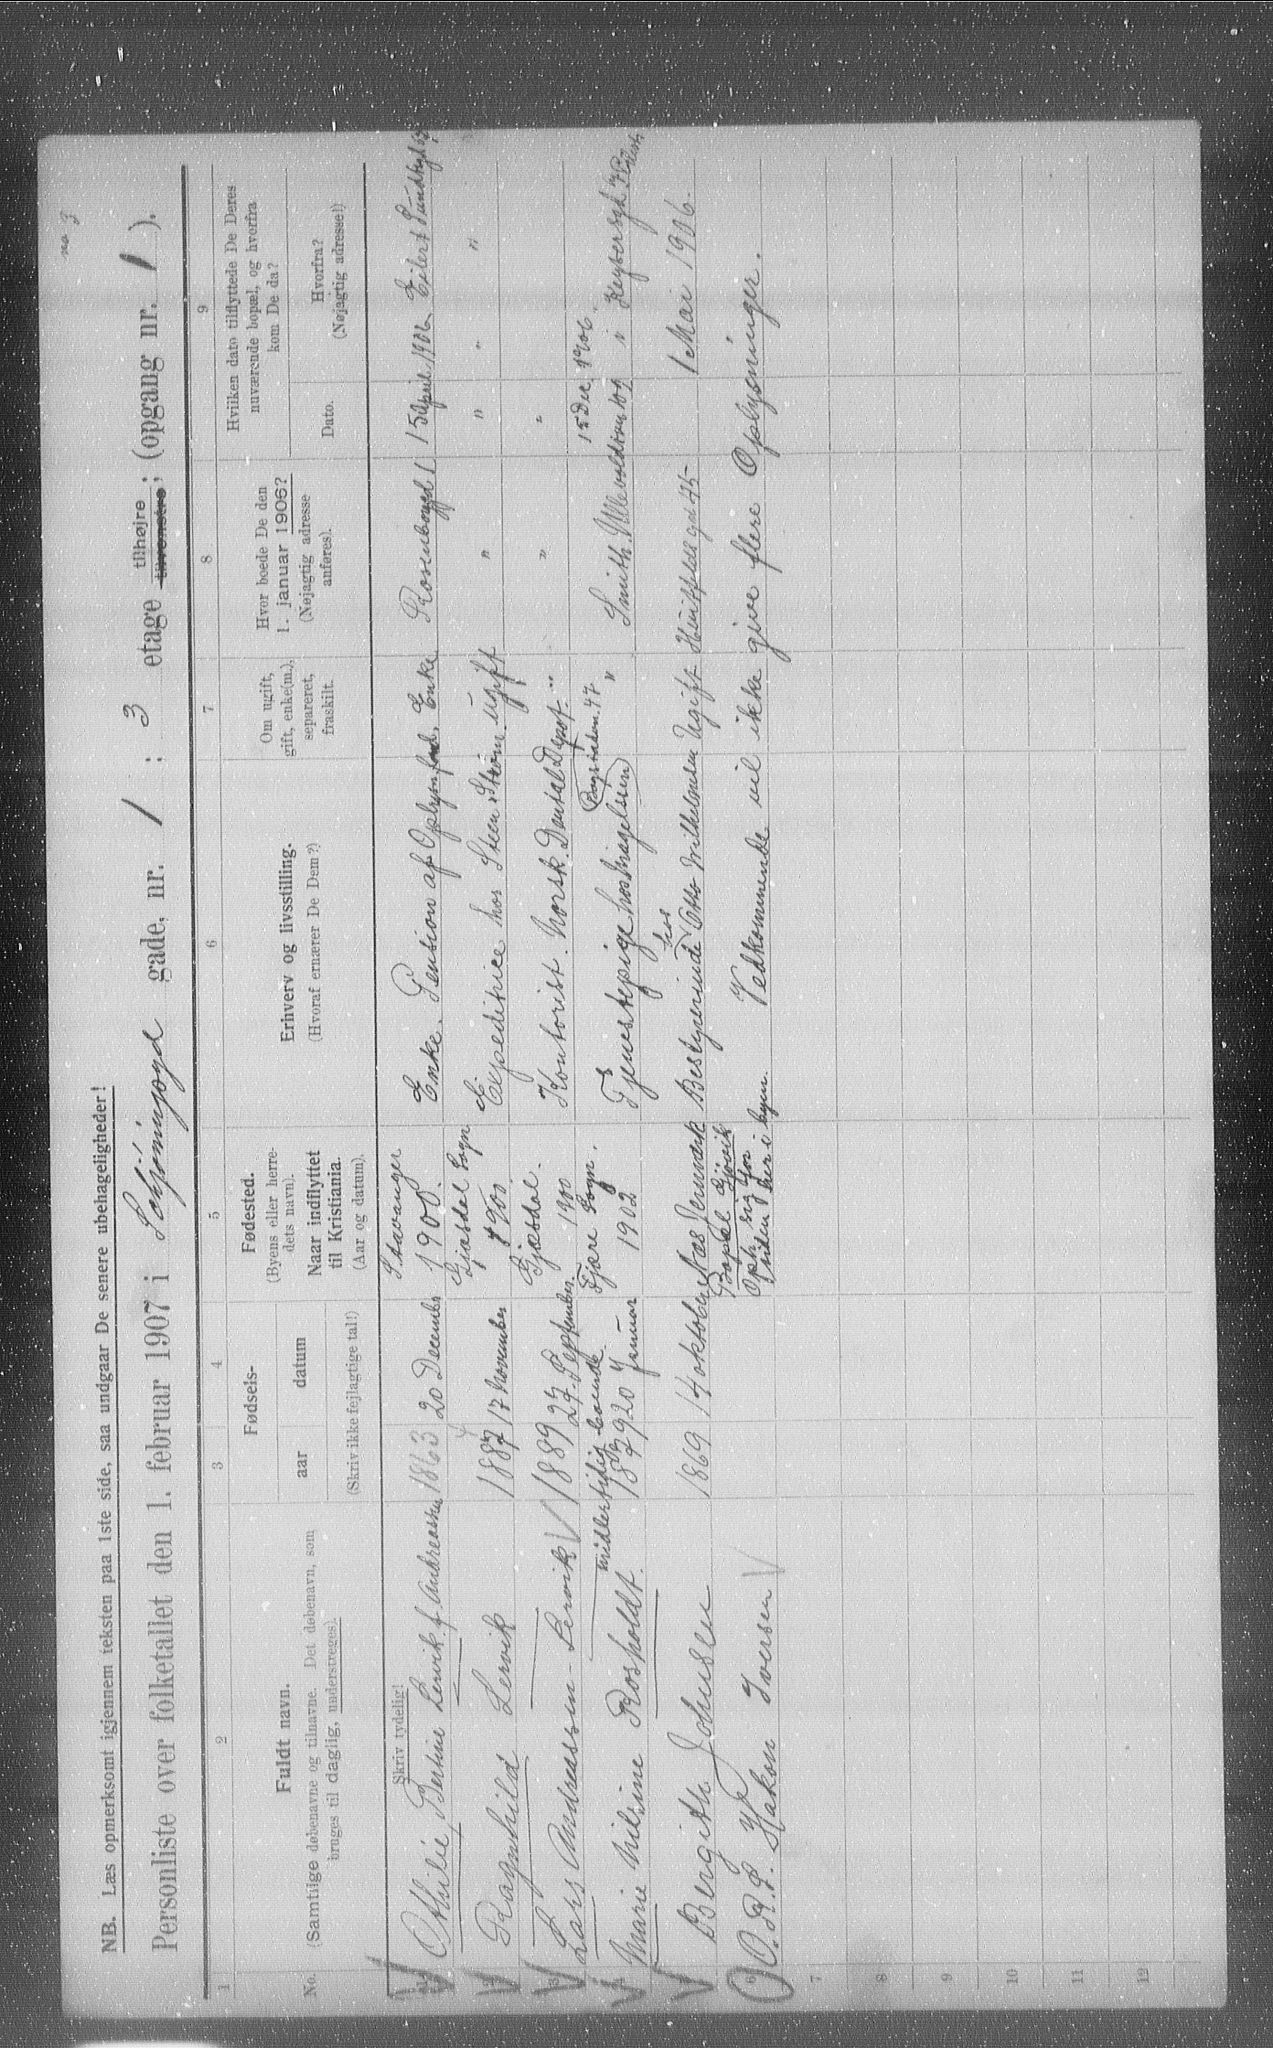 no 3
NB. Læs opmerksomt igjennem teksten paa 1ste side, saa undgaar De senere ubehageligheder!
Personliste over folketallet den 1. februar 1907 i Schøningsgd gade, nr. 1 : 3 etage tilhøjre tilvenstre; (opgang nr. 1 ).
1 2 3 4 5 6 7 8 9
No.
Fuldt navn.
(Samtlige døbenavne og tilnavne. Det døbenavn, som
bruges til daglig, understreges).
Fødsels-
aar datum
(Skriv ikke fejlagtige tal!)
Fødested.
(Byens eller herre-
dets navn).
Naar indflyttet
til Kristiania.
(Aar og datum).
Erhverv og livsstilling.
(Hvoraf ernærer De Dem?)
Om ugift,
gift, enke(m.),
separeret,
fraskilt.
Hvor boede De den
1. januar 1906?
(Nøjagtig adresse
anføres).
Hvilken dato tilflyttede De Deres
nuværende bopæl, og hvorfra
kom De da?
Dato.
Hvorfra?
(Nøjagtig adresse!)
Skriv tydelig!
1 Othilie Bertine Lervik f. Andreassen 1863 20 December Stavanger 1900. Enke. Pension af Enke Rosenborggd 1 15 April 1906 Eilert Sundtsgd
2 Ragnhild Lervik 1887 17 November Gjæsdal Sogn 1900. Expeditrice hos Steen Strøm ugift " " " "
3 Lars Andreassen Lervik 1889 27 September Gjæsdal. 1900 Kontorist. Norsk Dental Depot " " "
midlertidig boende
4 Marie Nilsine Rosholdt. 1879 20 Januar Fjære Sogn. 1902 Tjenestepige hos " Smith. Ullevoldsvn 109 15 Dec. 1906.
5 Bergith Johnsen 1869 14 oktober Næs Jernværk Bestyrerinde hos Otto Wilhelmsen Ugift 1 Mai 1906.
Bopæl Gjøvik
Oph. sig for
tiden her i byen.
6 O. R. P. Hakon Iversen Vedkommende vil ikke give flere Oplysninger.
7
8
9
10
11
12